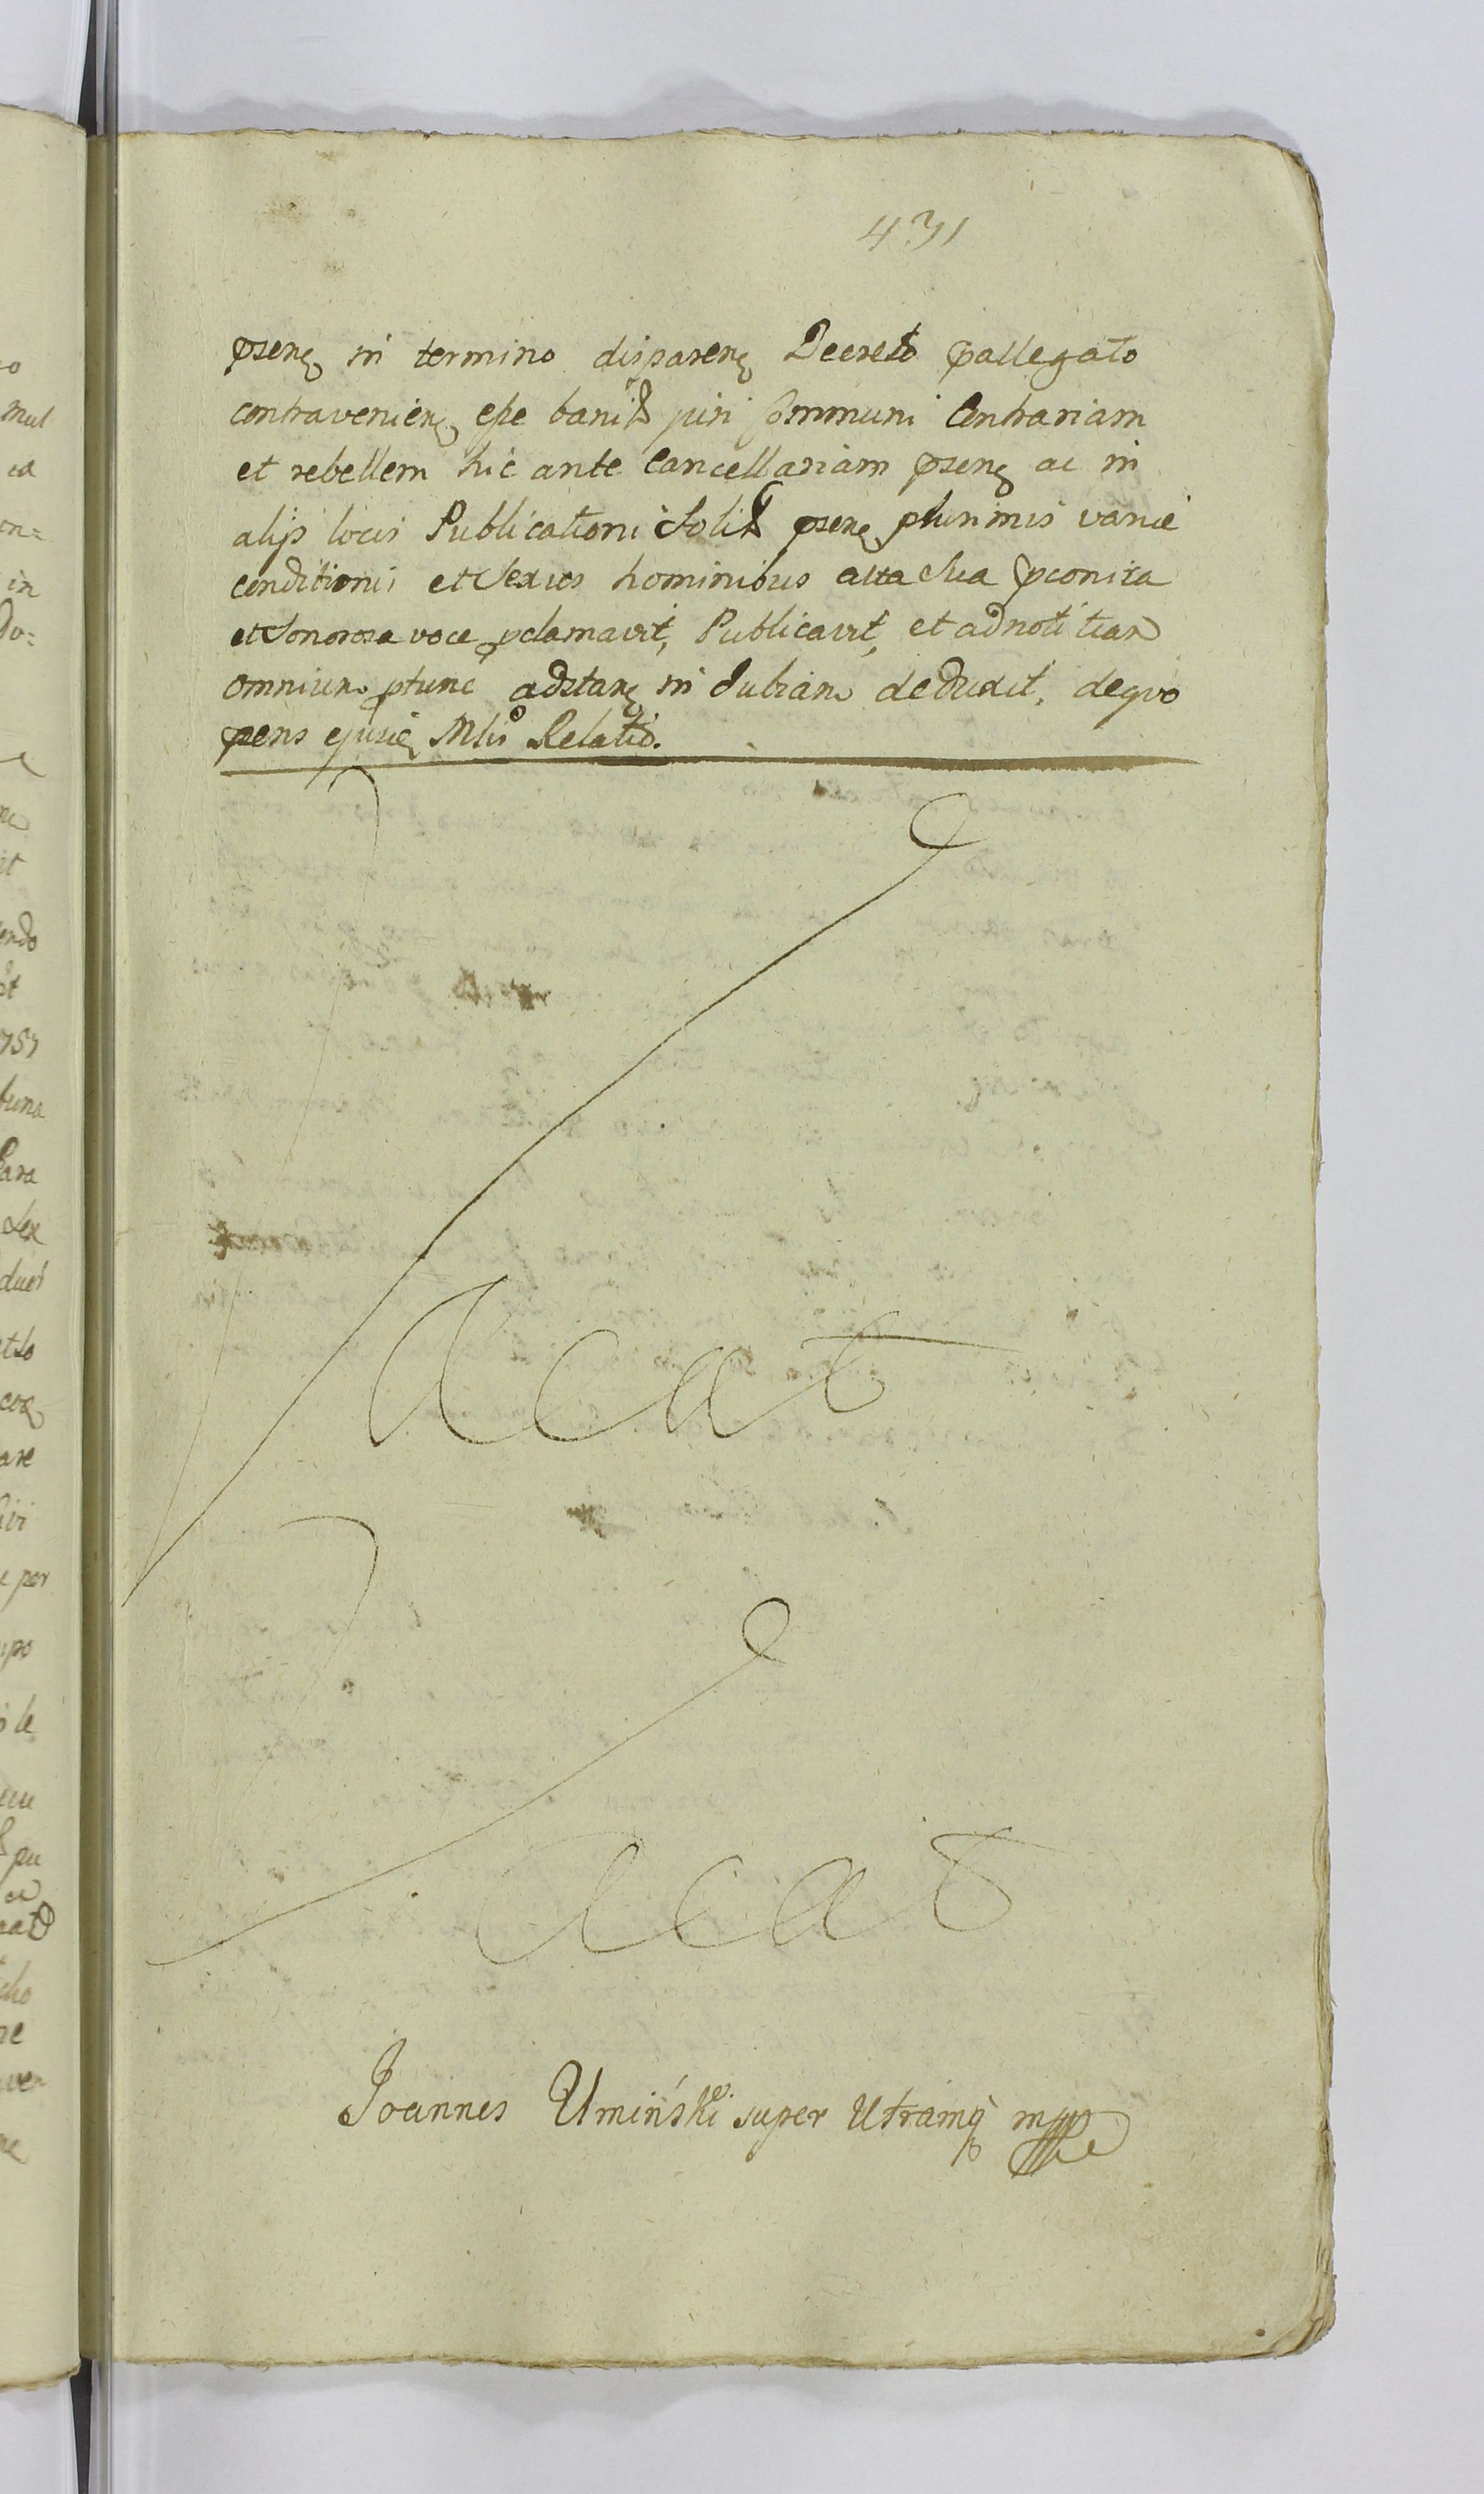 431
psen in termino disparen Decreto pallegato
contravenien esse banit juri Communi Contrariam
et rebellem hic ante Cancellariam psen ac in
alys locis Publicationi Solit psen plurimis variæ
conditionis et Sexus hominibus alta Sua pconica
et Sonorosa voce pclamavit, Publicavit, et ad notitiam
omnium ptunc adstan in dubiam deduxit, de quo
pens ejusd Mlis Relatio.
Vacat
Vacat
Joannes Umiński super Utramq mppe
mul
ca
en=
in
do=
endo
757
Lex
are
per